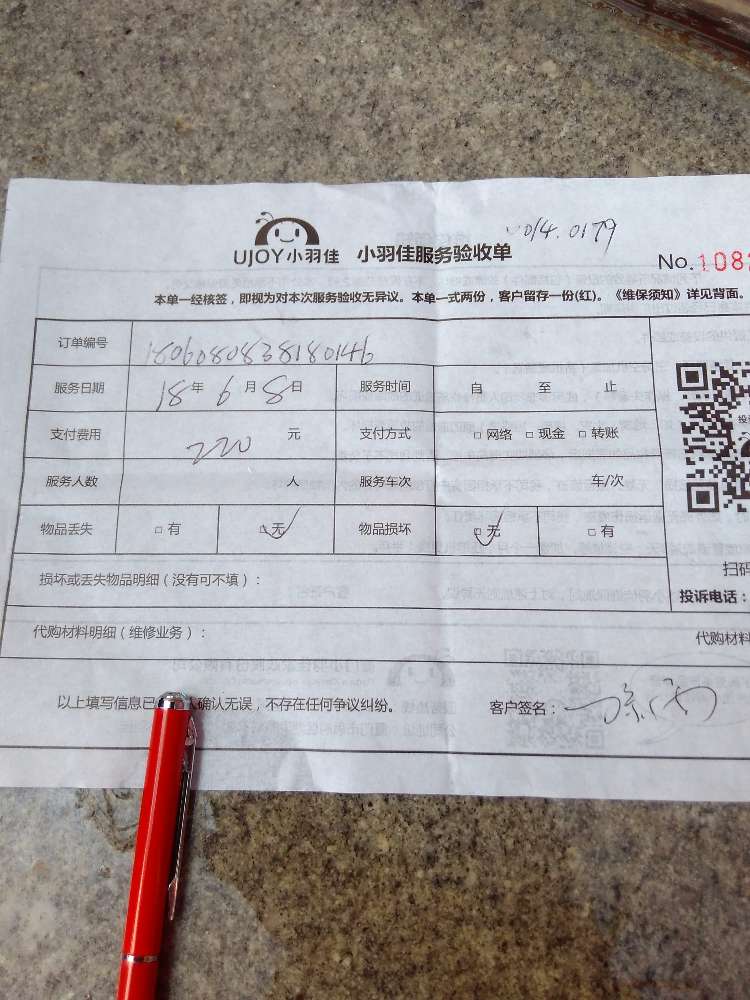 UJOY小羽佳 小羽佳服务验收单
No. 108
本单一经核签，即视为对本次服务验收无异议。本单一式两份，客户留存一份(红)。《维保须知》详见背面。
订单编号 1806080838180146
服务日期 18年 6月 8日 服务时间 自 至 止
支付费用 220 元 支付方式 □网络 □现金 □转账
服务人数 人 服务车次 车/次
物品丢失 □有 □无 物品损坏 □无 □有
扫码
损坏或丢失物品明细（没有可不填）：
投诉电话：
代购材料明细（维修业务）： 代购材料
以上填写信息已 确认无误，不存在任何争议纠纷。 客户签名：